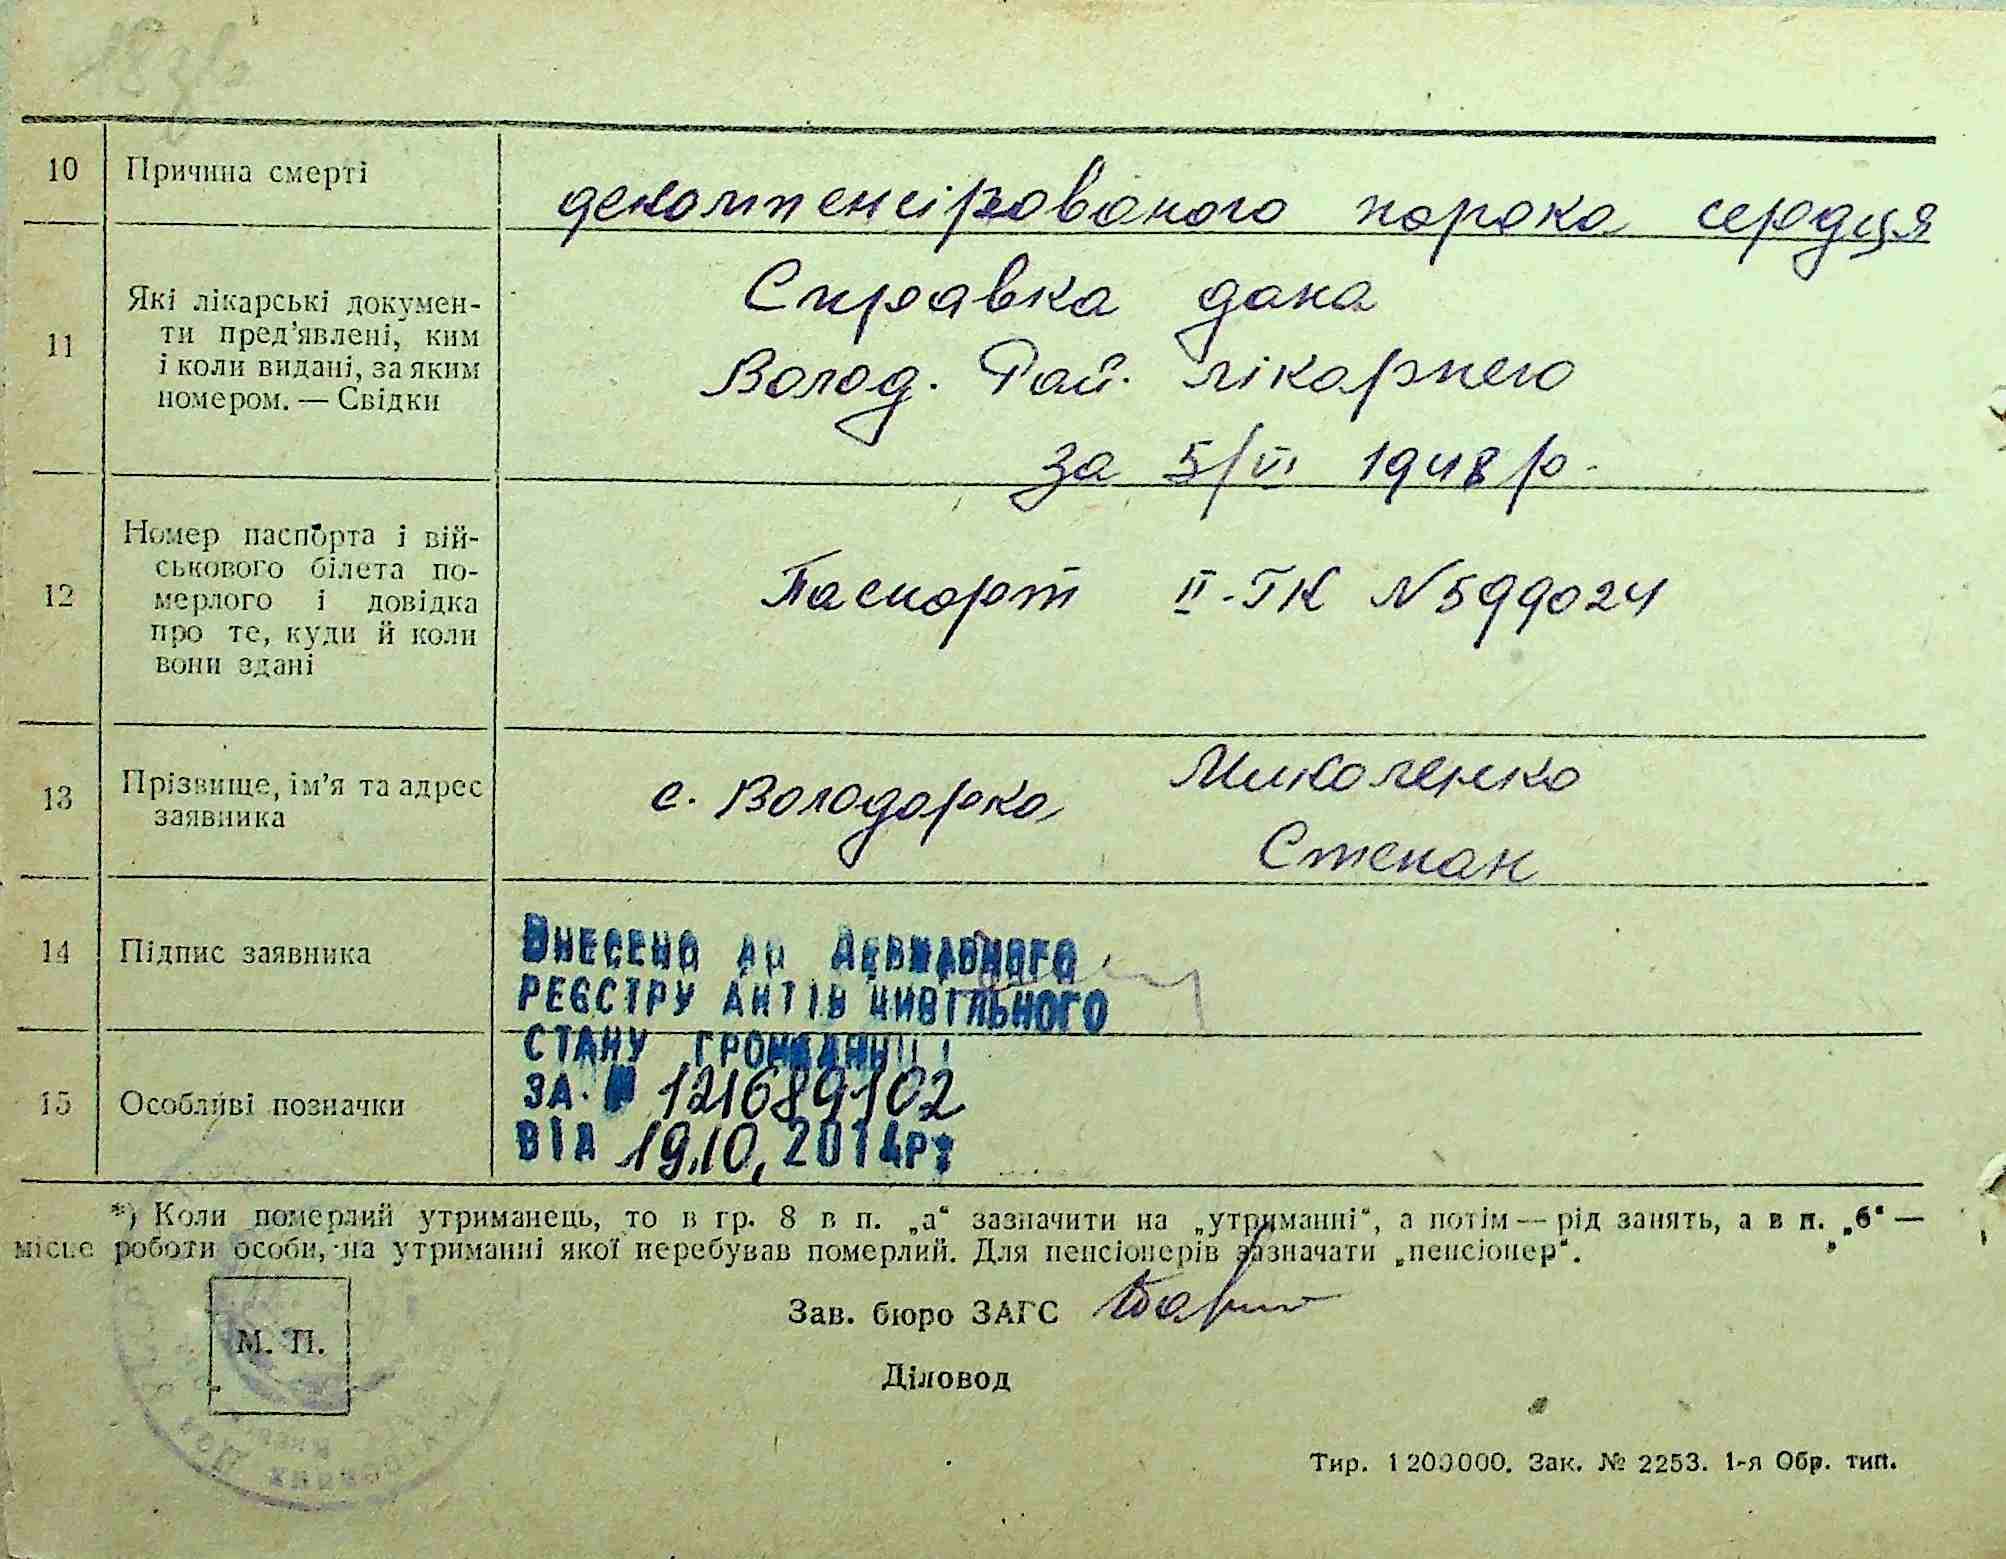 10 Причина смерті
декомпенсірованого порока сердця
11 Які лікарські докумен-
ти пред’явлені, ким
і коли видані, за яким
номером. — Свідки
Справка дана
Волод. Рай. лікарнею
за 5/VI 1948 р.
12 Номер паспорта і вій-
ськового білета по-
мерлого і довідка
про те, куди й коли
вони здані
Паспорт II-ТК N 599024
13 Прізвище, ім’я та адрес
заявника
с. Володарка Миколенко
Степан
14 Підпис заявника
Внесено до Державного
реєстру актів цивільного
стану громадян
за № 121689102
від 19.10, 2014р.
15 Особливі позначки
*) Коли померлий утриманець, то в гр. 8 в п. „а“ зазначити на „утриманні“, а потім — рід занять, а в п. „б“ —
місце роботи особи, на утриманні якої перебував померлий. Для пенсіонерів зазначати „пенсіонер“.
М. П.
Зав. бюро ЗАГС
Діловод
Тир. 1200000. Зак. № 2253. 1-я Обр. тип.